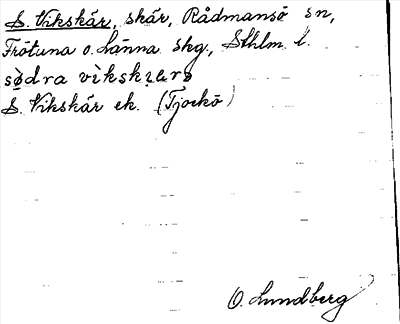 S. Vikskär, skär, Rådmansö sn,
Frötuna o. Länna skg., Sthlm l.
sö̀dra vìkskæ̣rə
S. Vikskär ek. (Tjockö)
O. Lundberg